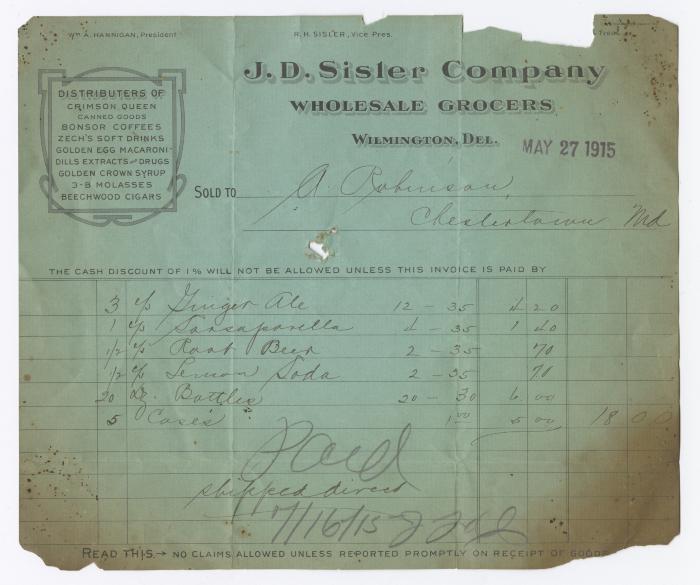 Wm A. Hannigan, President R. H. Sisler, Vice Pres. Treas.
J. D. Sisler Company
Wholesale Grocers
Wilmington, Del.
MAY 27 1915
Distributers of
Crimson Queen
Canned Goods
Bonsor Coffees
Zech's Soft Drinks
Golden Egg Macaroni-
Dills Extracts and Drugs
Golden Crown Syrup
3-B Molasses
Beechwood Cigars
Sold to A. Robinson,
Chestertown Md
The cash discount of 1% will not be allowed unless this invoice is paid by
3 c/s Ginger Ale 12 - 35 4 20
1 c/s Sarsaparella 4 - 35 1 40
1/2 c/s Root Beer 2 - 35 70
1/2 c/s Lemon Soda 2 - 35 70
20 dz. Bottles 20 - 30 6 00
5 Cases 1 00 5 00 18 00
Paid
shipped direct
7/16/15
Read this → No claims allowed unless reported promptly on receipt of goods